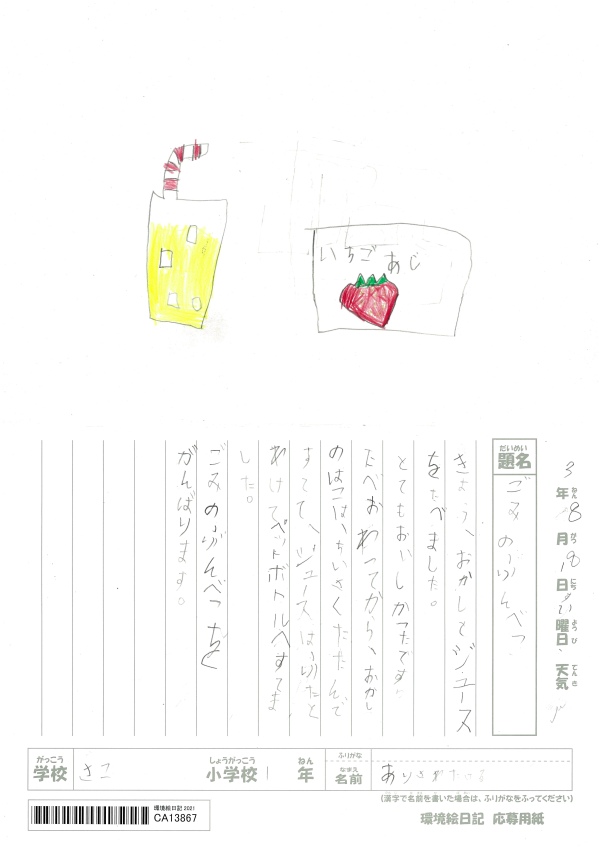 いちごあじ
3年8月18日曜日 天気
ねん がつ にち ようび てんき
だいめい
題名
ごみのぶんべつ
きょう、おかしとジュース
をたべました。
とてもおいしかったです。
たべおわってから、おかし
のはこはちいさくたたんで
すてて、ジュースは、ふたと
わけてペットボトルへすてま
した。
ごみのぶんべつを
がんばります。
がっこう
学校
さこ
しょうがっこう
小学校
1
ねん
年
ふりがな
なまえ
名前
(漢字で名前を書いた場合は、ふりがなをふってください)
環境絵日記 2021
CA13867
環境絵日記 応募用紙